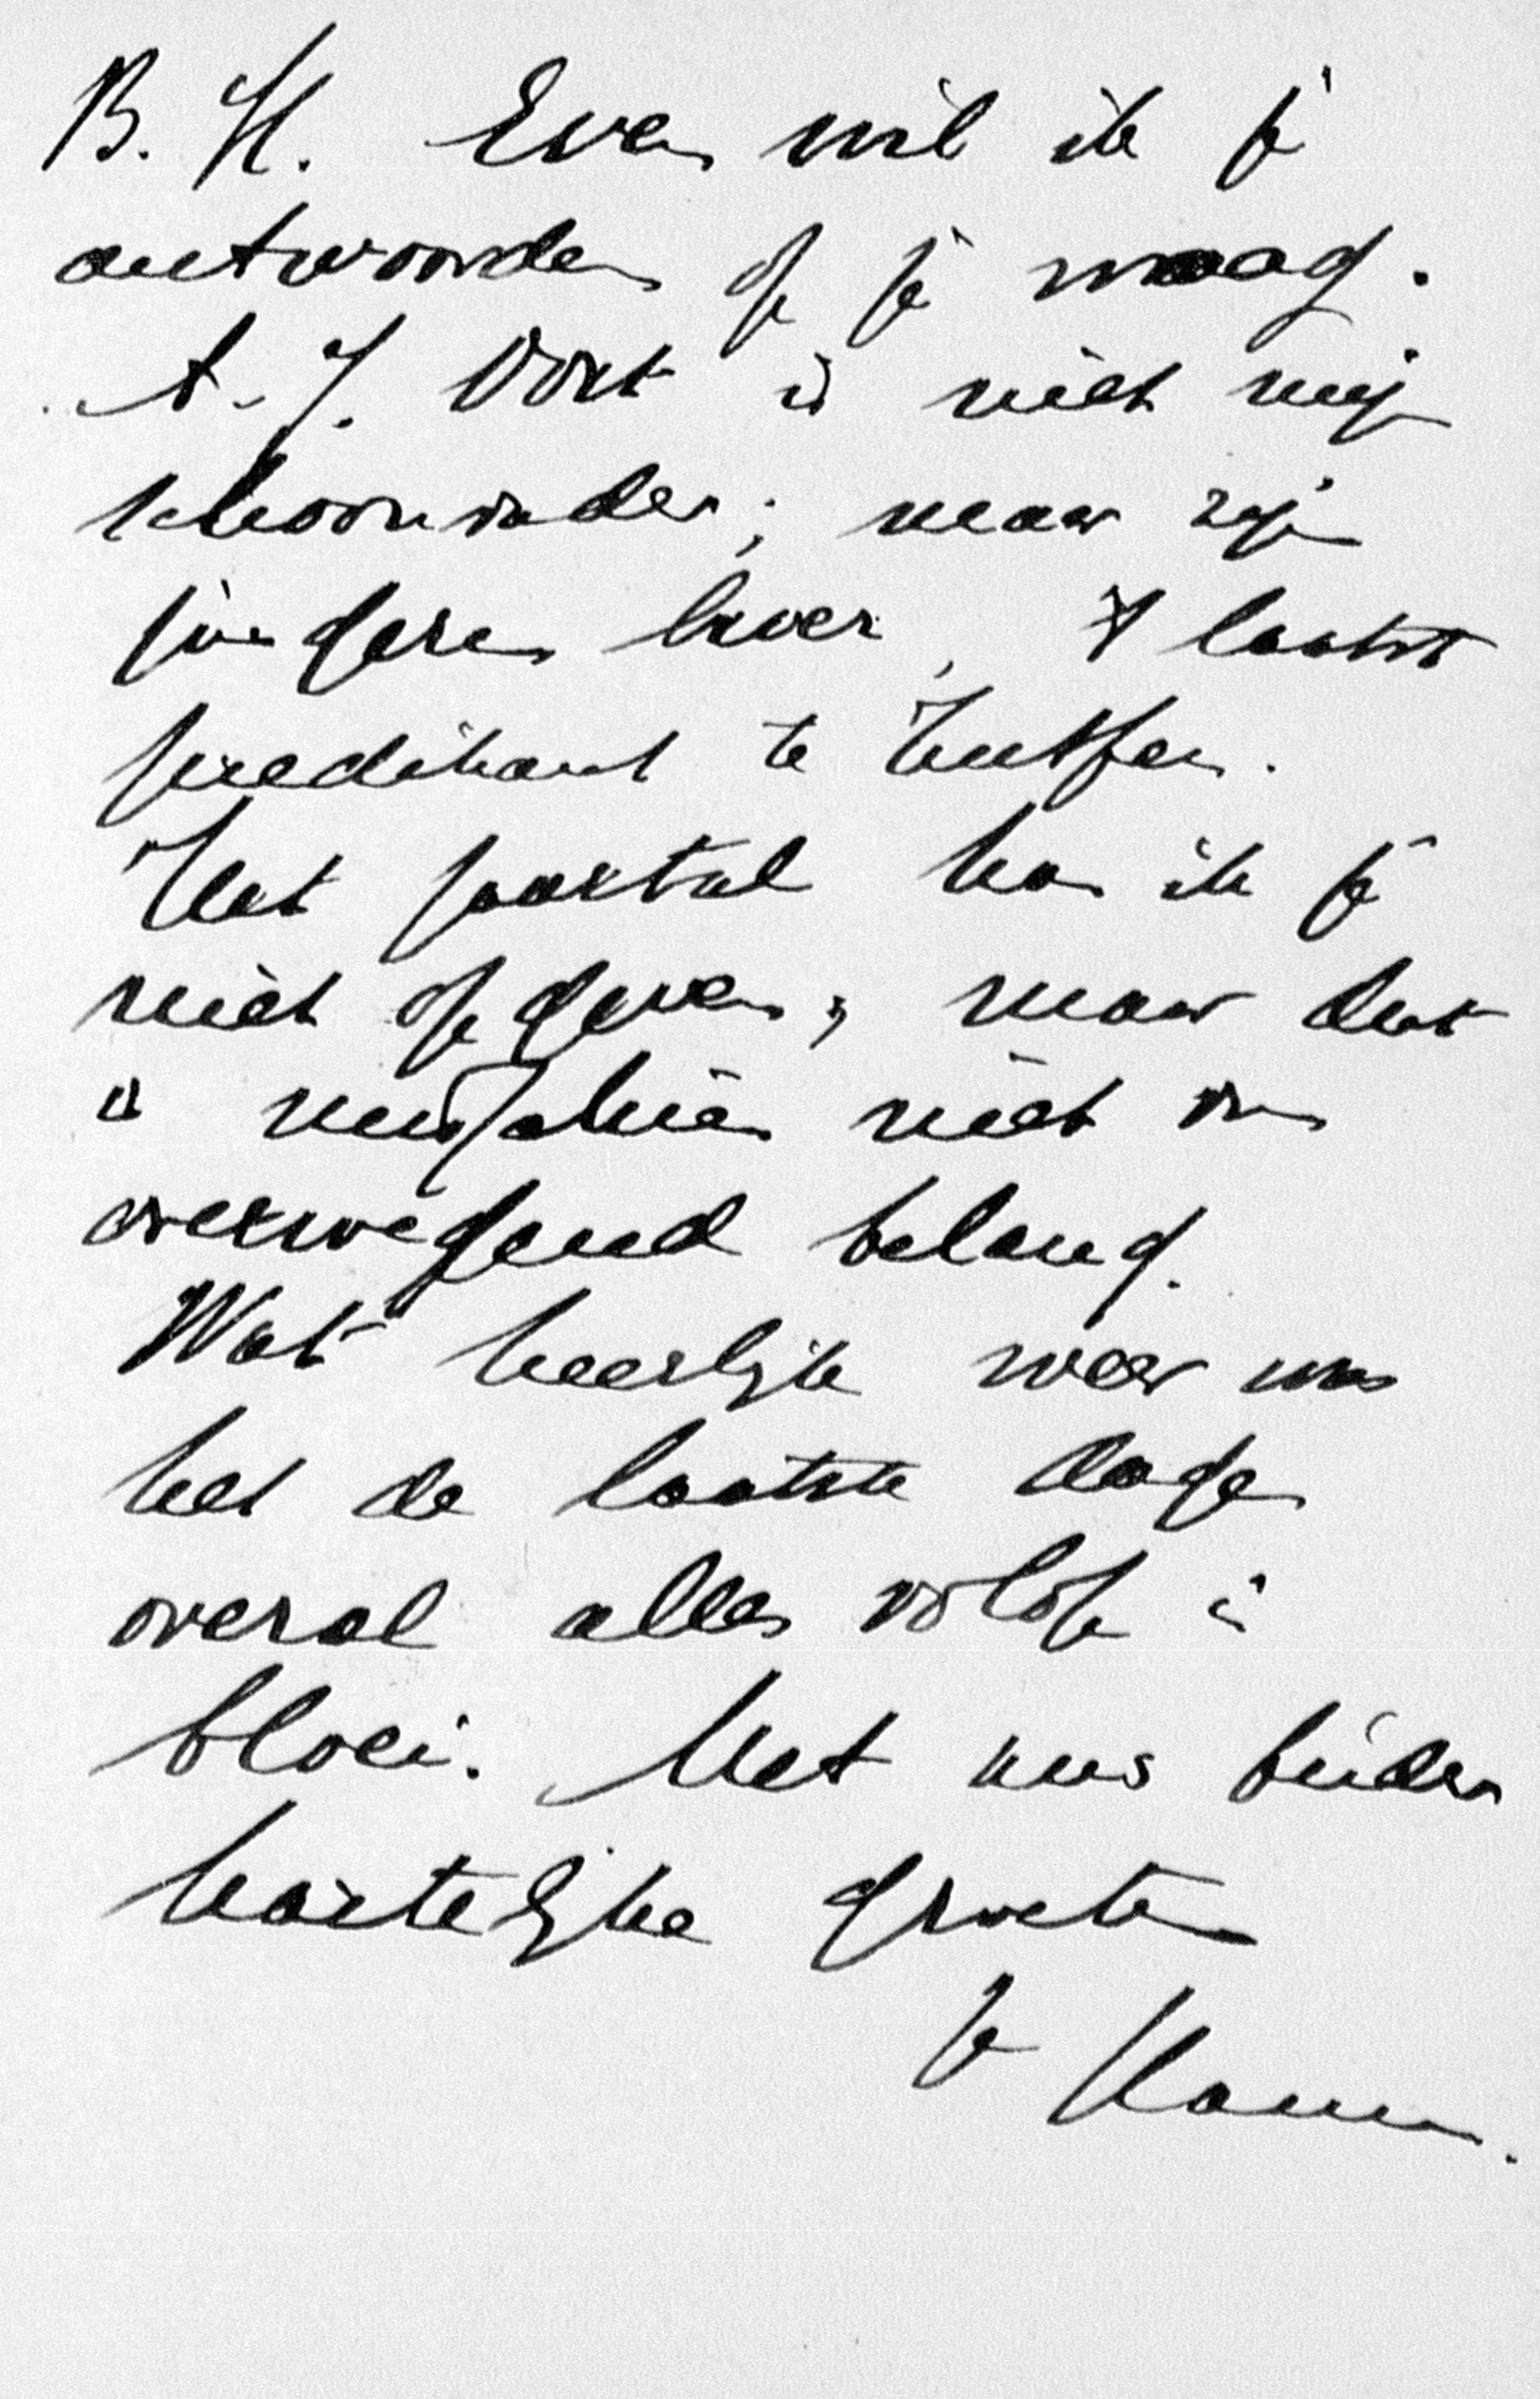 B. H. Even wil ik je
antwoorden op je vraag.
A. J. Oort is niet mijn
schoonvader; maar zijn
jongere broer, 't laatst
predikant te Zutfen.
Het jaartal kan ik je
niet opgeven, maar dat
is misschien niet van
overwegend belang.
Wat heerlijk weer was
het de laatste dagen
overal alles volop in
bloei. Met ons beider
hartelijke groeten
je Hann.